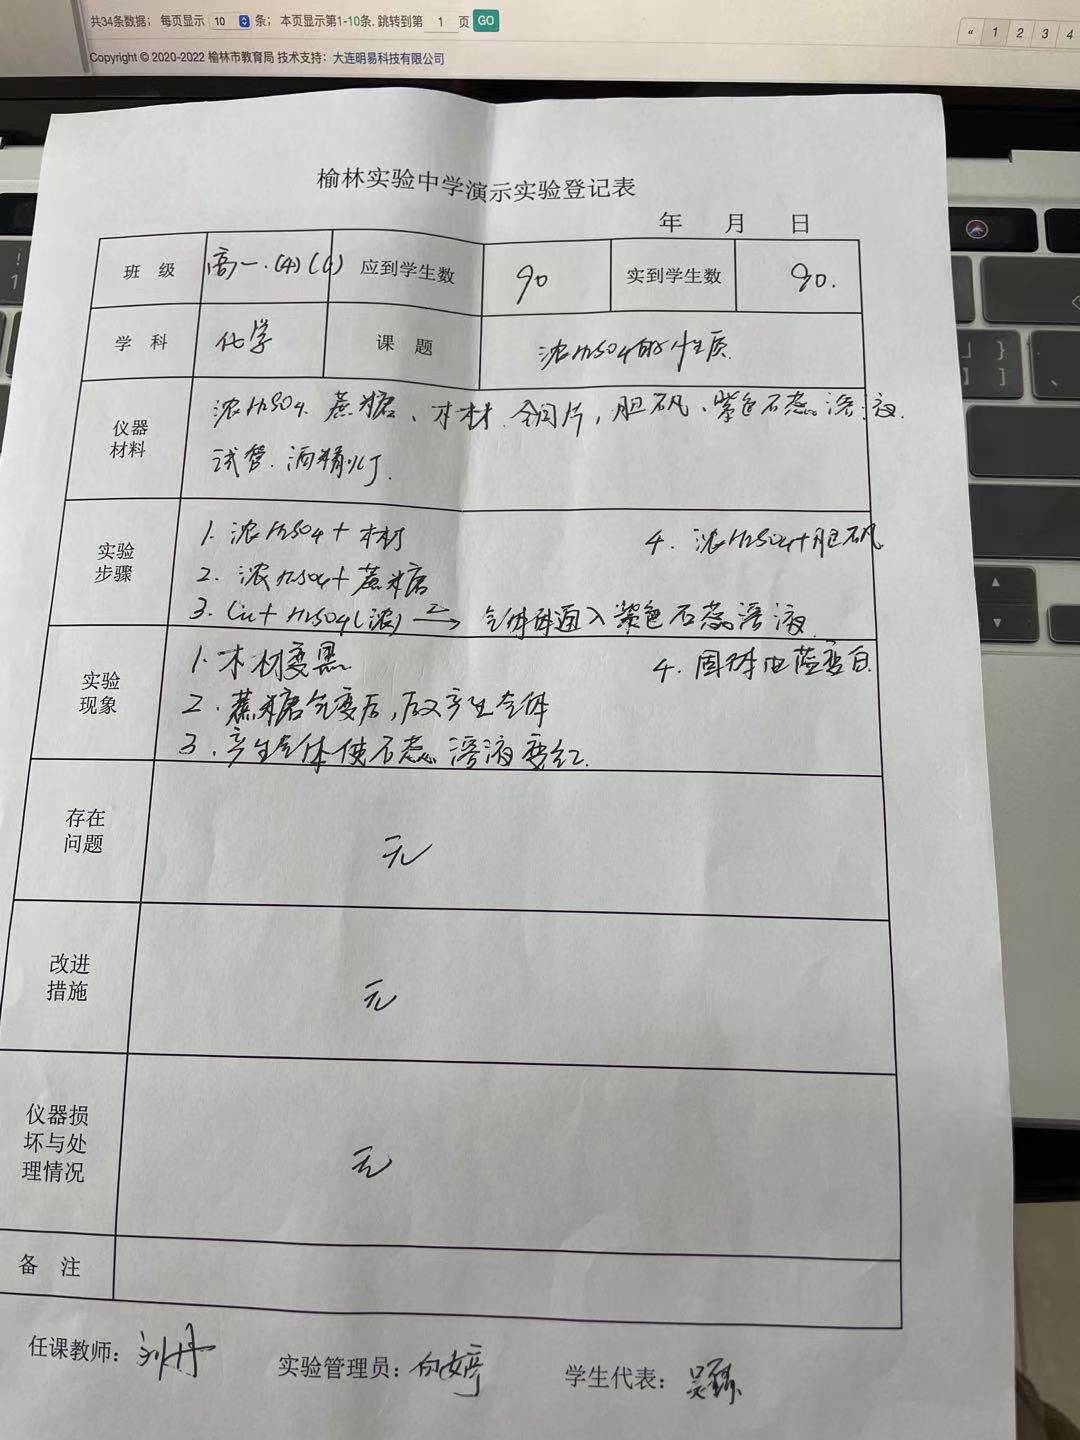 共34条数据； 每页显示 10 条； 本页显示第1-10条. 跳转到第 1 页 GO
« 1 2 3 4
Copyright © 2020-2022 榆林市教育局 技术支持：大连明易科技有限公司
榆林实验中学演示实验登记表
年 月 日
班 级 高一.(4)(6) 应到学生数 90 实到学生数 90.
学 科 化学 课 题 浓H2SO4的性质.
仪器材料 浓H2SO4. 蔗糖、木材. 铜片, 胆矾、紫色石蕊溶液.
试管. 酒精灯.
实验步骤 1. 浓H2SO4+木材 4. 浓H2SO4+胆矾
2. 浓H2SO4+蔗糖
3. Cu+H2SO4(浓) 气体通入紫色石蕊溶液.
实验现象 1. 木材变黑 4. 固体由蓝变白.
2. 蔗糖先变后, 后又产生气体
3. 产生气体使石蕊溶液变红.
存在问题 无
改进措施 无
仪器损坏与处理情况 无
备 注
任课教师：刘丹 实验管理员：向婷 学生代表：